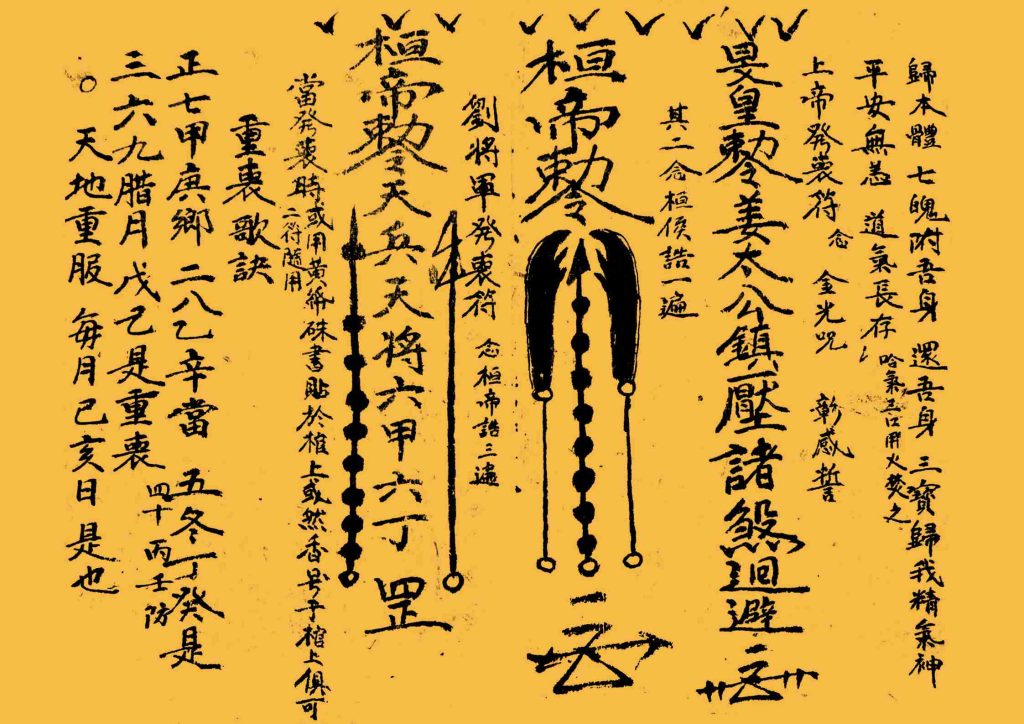 歸本體 七魄附吾身 還吾身 三寶歸我精氣神
平安無恙 道氣長存 哈氣三口用火焚之
上帝發喪符 念 金光咒 彰感誓
昊皇勅令姜太公鎮壓諸煞迴避
其二 念桓侯誥一遍
桓帝勅令
劉將軍發喪符 念桓帝誥三遍
桓帝勅令天兵天將六甲六丁 罡
當發喪時或用黃紙硃書貼於棺上或然香号于棺上俱可
二符隨用
重喪歌訣
正七甲庚鄉 二八乙辛當 五冬丁癸是
四十丙壬防
三六九腊月 戊己是重喪
。天地重服 每月己亥日是也